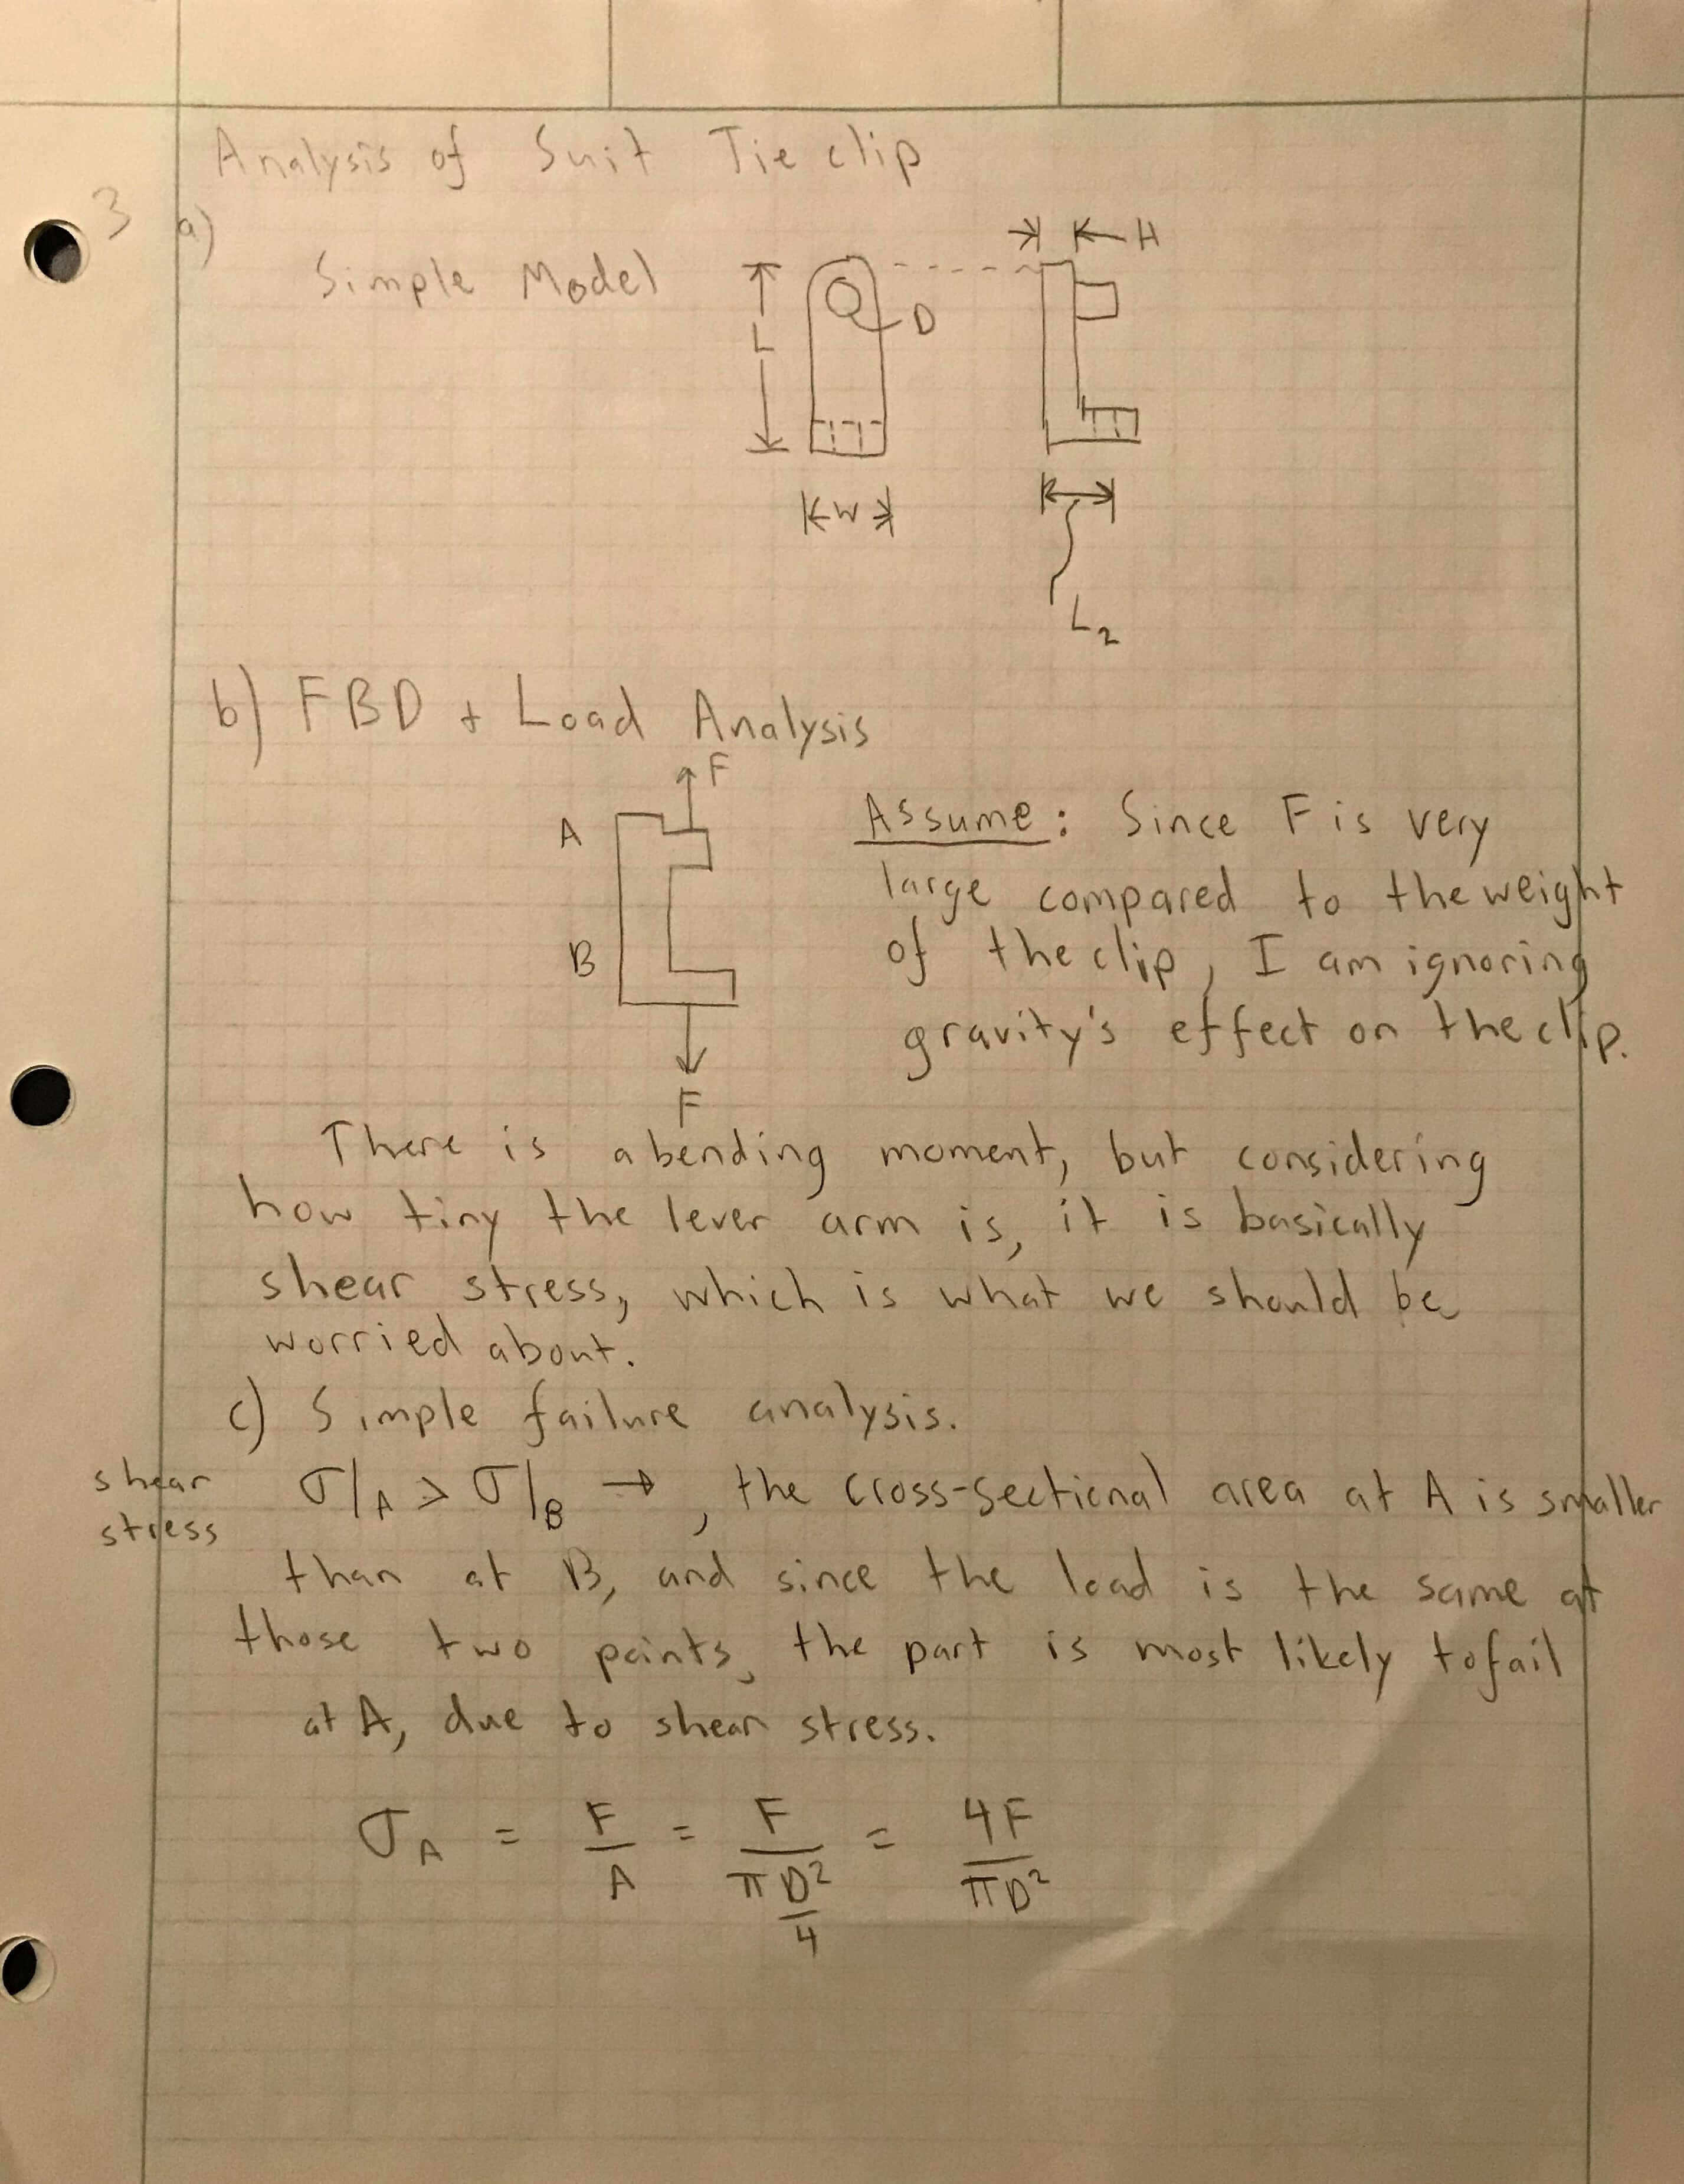 Analysis of Suit Tie clip
3 a)
Simple Model
H
L
D
W
L₂
b) FBD + Load Analysis
F
A
B
F
Assume: Since F is very
large compared to the weight
of the clip, I am ignoring
gravity's effect on the clip.
There is a bending moment, but considering
how tiny the lever arm is, it is basically
shear stress, which is what we should be
worried about.
c) Simple failure analysis.
shear
stress
σ|A > σ|B → , the cross-sectional area at A is smaller
than at B, and since the load is the same at
those two points, the part is most likely to fail
at A, due to shear stress.
σA = F/A = F/(πD²/4) = 4F/πD²